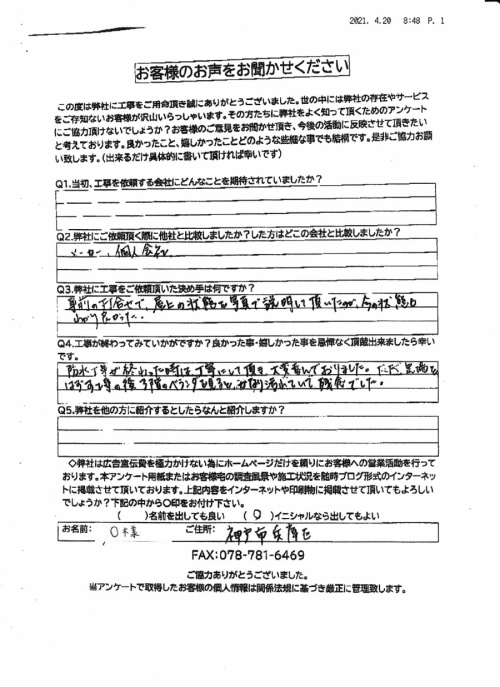 2021. 4.20 8:48 P. 1
お客様のお声をお聞かせください
この度は弊社に工事をご用命頂き誠にありがとうございました。世の中には弊社の存在やサービス
をご存知ないお客様が沢山いらっしゃいます。その方たちに弊社をよく知って頂くためのアンケート
にご協力頂けないでしょうか？お客様のご意見をお聞かせ頂き、今後の活動に反映させて頂きたい
と考えております。良かったこと、嬉しかったことどのような些細な事でも結構です。是非ご協力お願
い致します。（出来るだけ具体的に書いて頂ければ幸いです）
Q1.当初、工事を依頼する会社にどんなことを期待されていましたか？
Q2.弊社にご依頼頂く際に他社と比較しましたか？した方はどこの会社と比較しましたか？
メーカー、個人会社
Q3.弊社に工事をご依頼頂いた決め手は何ですか？
事前の打合せで、屋上の状態を写真で説明して頂いたので、今の状態が
わかり良かった。
Q4.工事が終わってみていかがですか？良かった事・嬉しかった事を忌憚なく頂戴出来ましたら幸い
です。
防水工事が終わった時は、丁寧にして頂き、大変喜んでおりました。ただ、足場を
はずす工事の後、下階のベランダを見ると、汚れていて残念でした。
Q5.弊社を他の方に紹介するとしたらなんと紹介しますか？
◇弊社は広告宣伝費を極力かけない為にホームページだけを頼りにお客様への営業活動を行って
おります。本アンケート用紙またはお客様宅の調査風景や施工状況を随時ブログ形式のインターネッ
トに掲載させて頂いております。上記内容をインターネットや印刷物に掲載させて頂いてもよろしい
でしょうか？下記の中から〇印をお付け下さい。
（　　）名前を出しても良い （○）イニシャルなら出してもよい
お名前： O木様 ご住所： 神戸市兵庫区
FAX:078-781-6469
ご協力ありがとうございました。
当アンケートで取得したお客様の個人情報は関係法規に基づき厳正に管理致します。